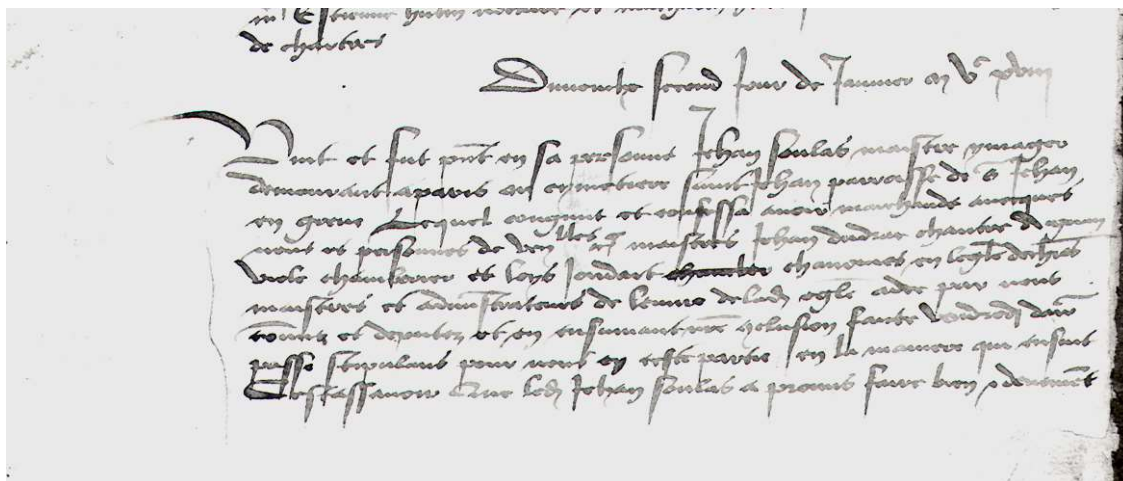 de chartres
Dimenche second Jour de Janvier m vᶜ xviii
Vint et fut pñt en sa personne Jehan soulas maistre ymager
demourant a paris ou cymetiere sainct Jehan parroisse de s Jehan
en greve Lequel congnut et confessa avoir marchande avecques
nous es personnes de ven lles et maistres Jehan dudrac chantre
viole chambrier et loys Joudart chanoines en legle de chres
maistres et admĩstrateurs de leuvre de lad egle a de par nous
commis et deputez et en ensuivant nrẽ conclusion faicte vendredi darr
passe stipulans pour nous en ceste partie en la maniere qui ensuit
Cestassavoir Que led Jehan soulas a promis faire bien et deuement